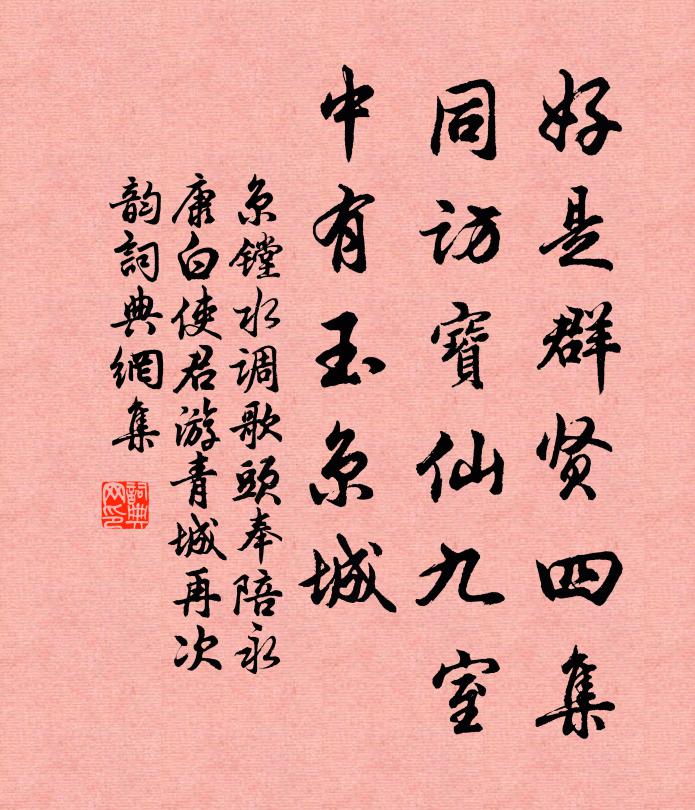 好是群贤四集
同访寶仙九室
中有玉京城
京镗水调歌頭奉陪永
康白使君游青城再次
韵詞典網集
詞典
网印